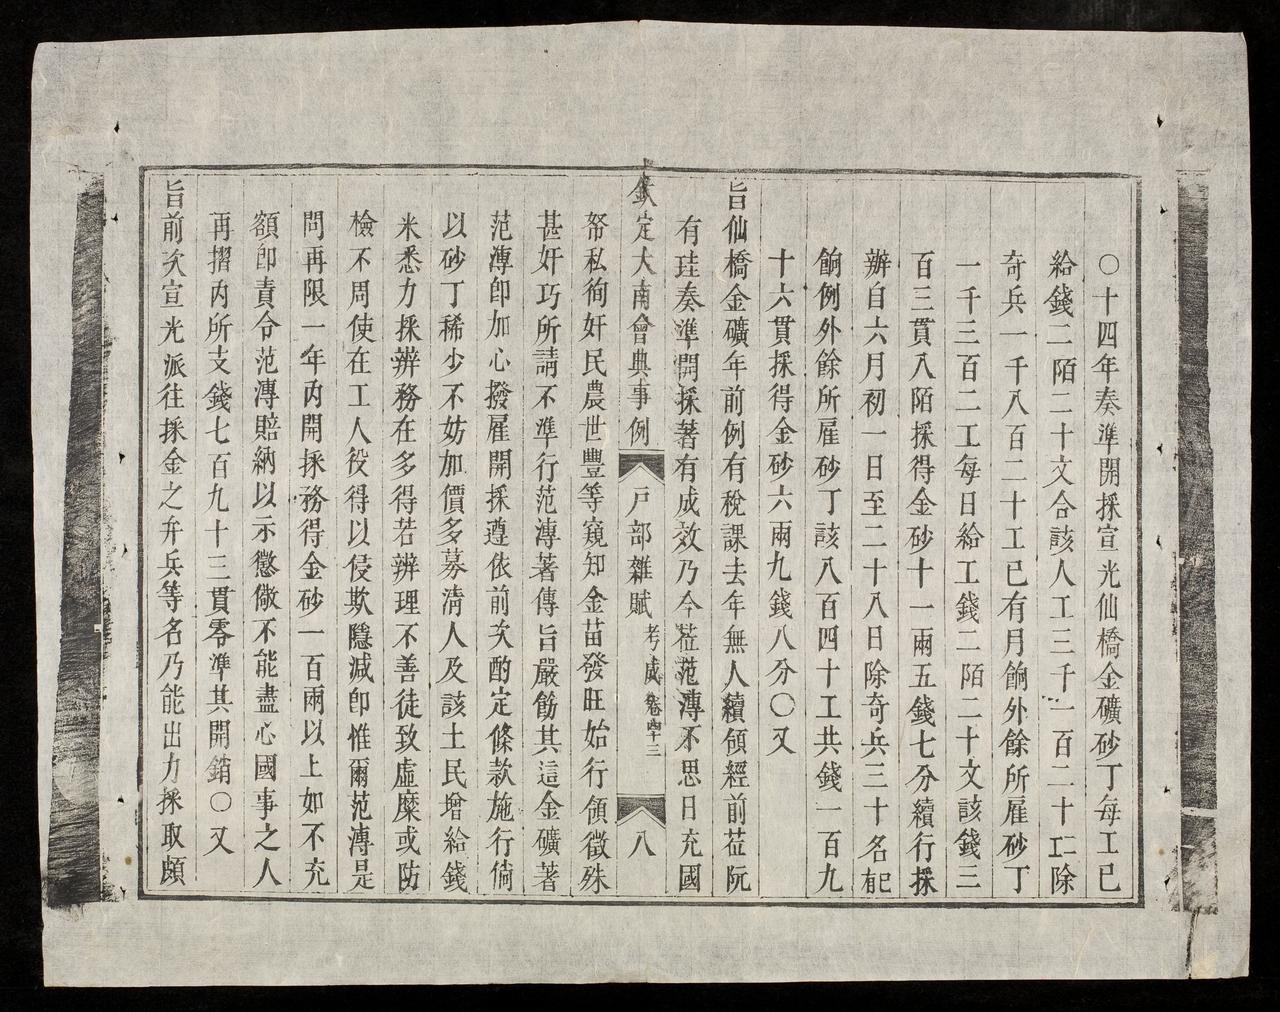 〇十四年奏準開採宣光仙橋金礦砂丁每工已
給錢二陌二十文合該人工三千一百二十工除
奇兵一千八百二十工已有月餉外餘所雇砂丁
一千三百二工每日給工錢二陌二十文該錢三
百三貫八陌採得金砂十一兩五錢七分續行採
辦自六月初一日至二十八日除奇兵三十名
餉例外餘所雇砂丁該八百四十工共錢一百九
十六貫採得金砂六兩九錢八分〇又
旨仙橋金礦年前例有稅課去年無人續領經前莅阮
有珪奏準開採著有成效乃今莅范漙不思日充國
欽定大南會典事例 戶部雜賦 考成 卷四十三 八
帑私徇奸民農世豐等窺知金苗發旺始行領徵殊
甚奸巧所請不準行范漙著傳旨嚴飭其這金礦著
范漙卽加心撥雇開採遵依前次酌定條款施行倘
以砂丁稀少不妨加價多募淸人及該土民增給錢
米悉力採辨務在多得若辨理不善徒致虛糜或防
檢不周使在工人役得以侵欺隱減卽惟爾范漙是
問再限一年內開採務得金砂一百兩以上如不充
額卽責令范漙賠納以示懲儆不能盡心國事之人
再摺內所支錢七百九十三貫零準其開銷〇又
旨前次宣光派往採金之弁兵等名乃能出力採取頗